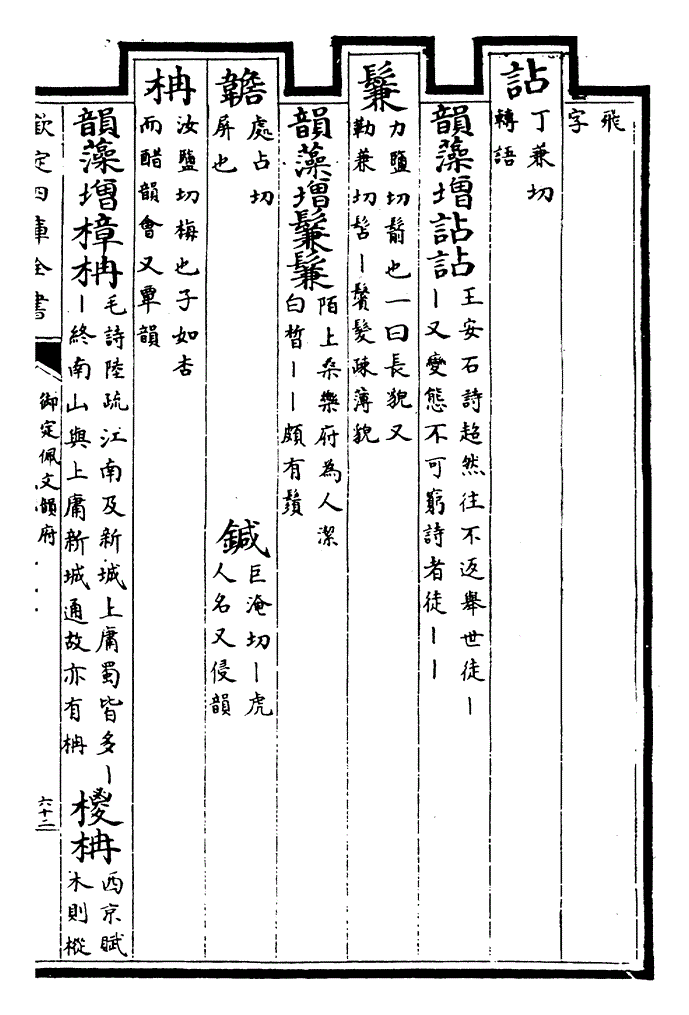 飛
字
詀
丁兼切
轉語
韻藻増詀詀
王安石詩超然往不返舉世徒丨
丨又變態不可窮詩者徒丨丨
鬑
力鹽切鬋也一曰長貌又
勒兼切髻丨鬢髮疎薄貌
韻藻増鬑鬑
陌上桑樂府為人潔
白晳丨丨頗有鬚
韂
處占切
屏也
鍼
巨淹切丨虎
人名又侵韻
柟
汝鹽切梅也子如杏
而醋韻會又覃韻
韻藻増樟柟
毛詩陸疏江南及新城上庸蜀皆多丨
丨終南山與上庸新城通故亦有柟
楩柟
西京賦
木則樅
欽定四庫全書
御定佩文韻府
六十二